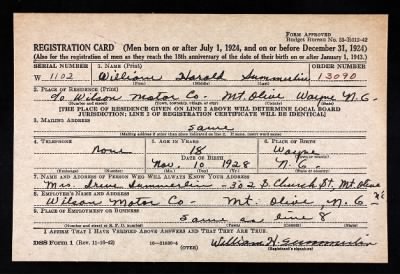 FORM APPROVED
Budget Bureau No. 33-R012-42
REGISTRATION CARD (Men born on or after July 1, 1924, and on or before December 31, 1924)
(Also for the registration of men as they reach the 18th anniversary of the date of their birth on or after January 1, 1943.)
SERIAL NUMBER 1. NAME (Print) ORDER NUMBER
W 1102 William Harold Summerlin 13090
(First) (Middle) (Last)
2. PLACE OF RESIDENCE (Print)
% Wilson Motor Co- Mt. Olive Wayne N.C.
(Number and street) (Town, township, village, or city) (County) (State)
[THE PLACE OF RESIDENCE GIVEN ON LINE 2 ABOVE WILL DETERMINE LOCAL BOARD
JURISDICTION; LINE 2 OF REGISTRATION CERTIFICATE WILL BE IDENTICAL]
3. MAILING ADDRESS
same
(Mailing address if other than place indicated on line 2. If same, insert word same)
4. TELEPHONE 5. AGE IN YEARS 6. PLACE OF BIRTH
None 18 Wayne
DATE OF BIRTH (Town or county)
Nov. 10 1928 N.C.
(Exchange) (Number) (Mo.) (Day) (Yr.) (State or country)
7. NAME AND ADDRESS OF PERSON WHO WILL ALWAYS KNOW YOUR ADDRESS
Mrs. Summerlin - 302 Church St, Mt. Olive N.C.
8. EMPLOYER'S NAME AND ADDRESS
Wilson Motor Co Mt. Olive N.C.
9. PLACE OF EMPLOYMENT OR BUSINESS
same as line 8
(Number and street or R. F. D. number) (Town) (County) (State)
I AFFIRM THAT I HAVE VERIFIED ABOVE ANSWERS AND THAT THEY ARE TRUE.
DSS Form 1 (Rev. 11-16-42) (OVER) William H. Summerlin
(Registrant's signature)